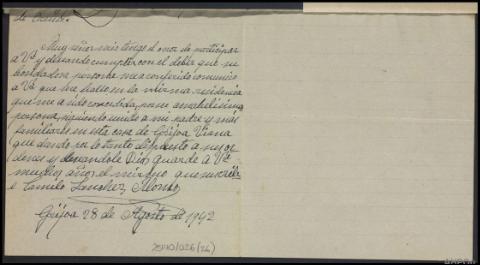 de Oviedo.
Muy señor mio tengo el onor de participar
a Vd y deseando cumplir con el deber que su
bondadosa persona me a conferido comunico
a Vd que me hallo en la misma residencia
que me a sido concedida, por su amabilisima
persona, siguiendo unido a mi padre y más
familiares en esta casa de Grijoa Viana
quedando por lo tanto dispuesto a sus or
denes y deseandole Dios guarde a Vd
muchos años, el mismo que suscribe
Camilo Sanchez Alonso
Grijoa 28 de Agosto de 1942